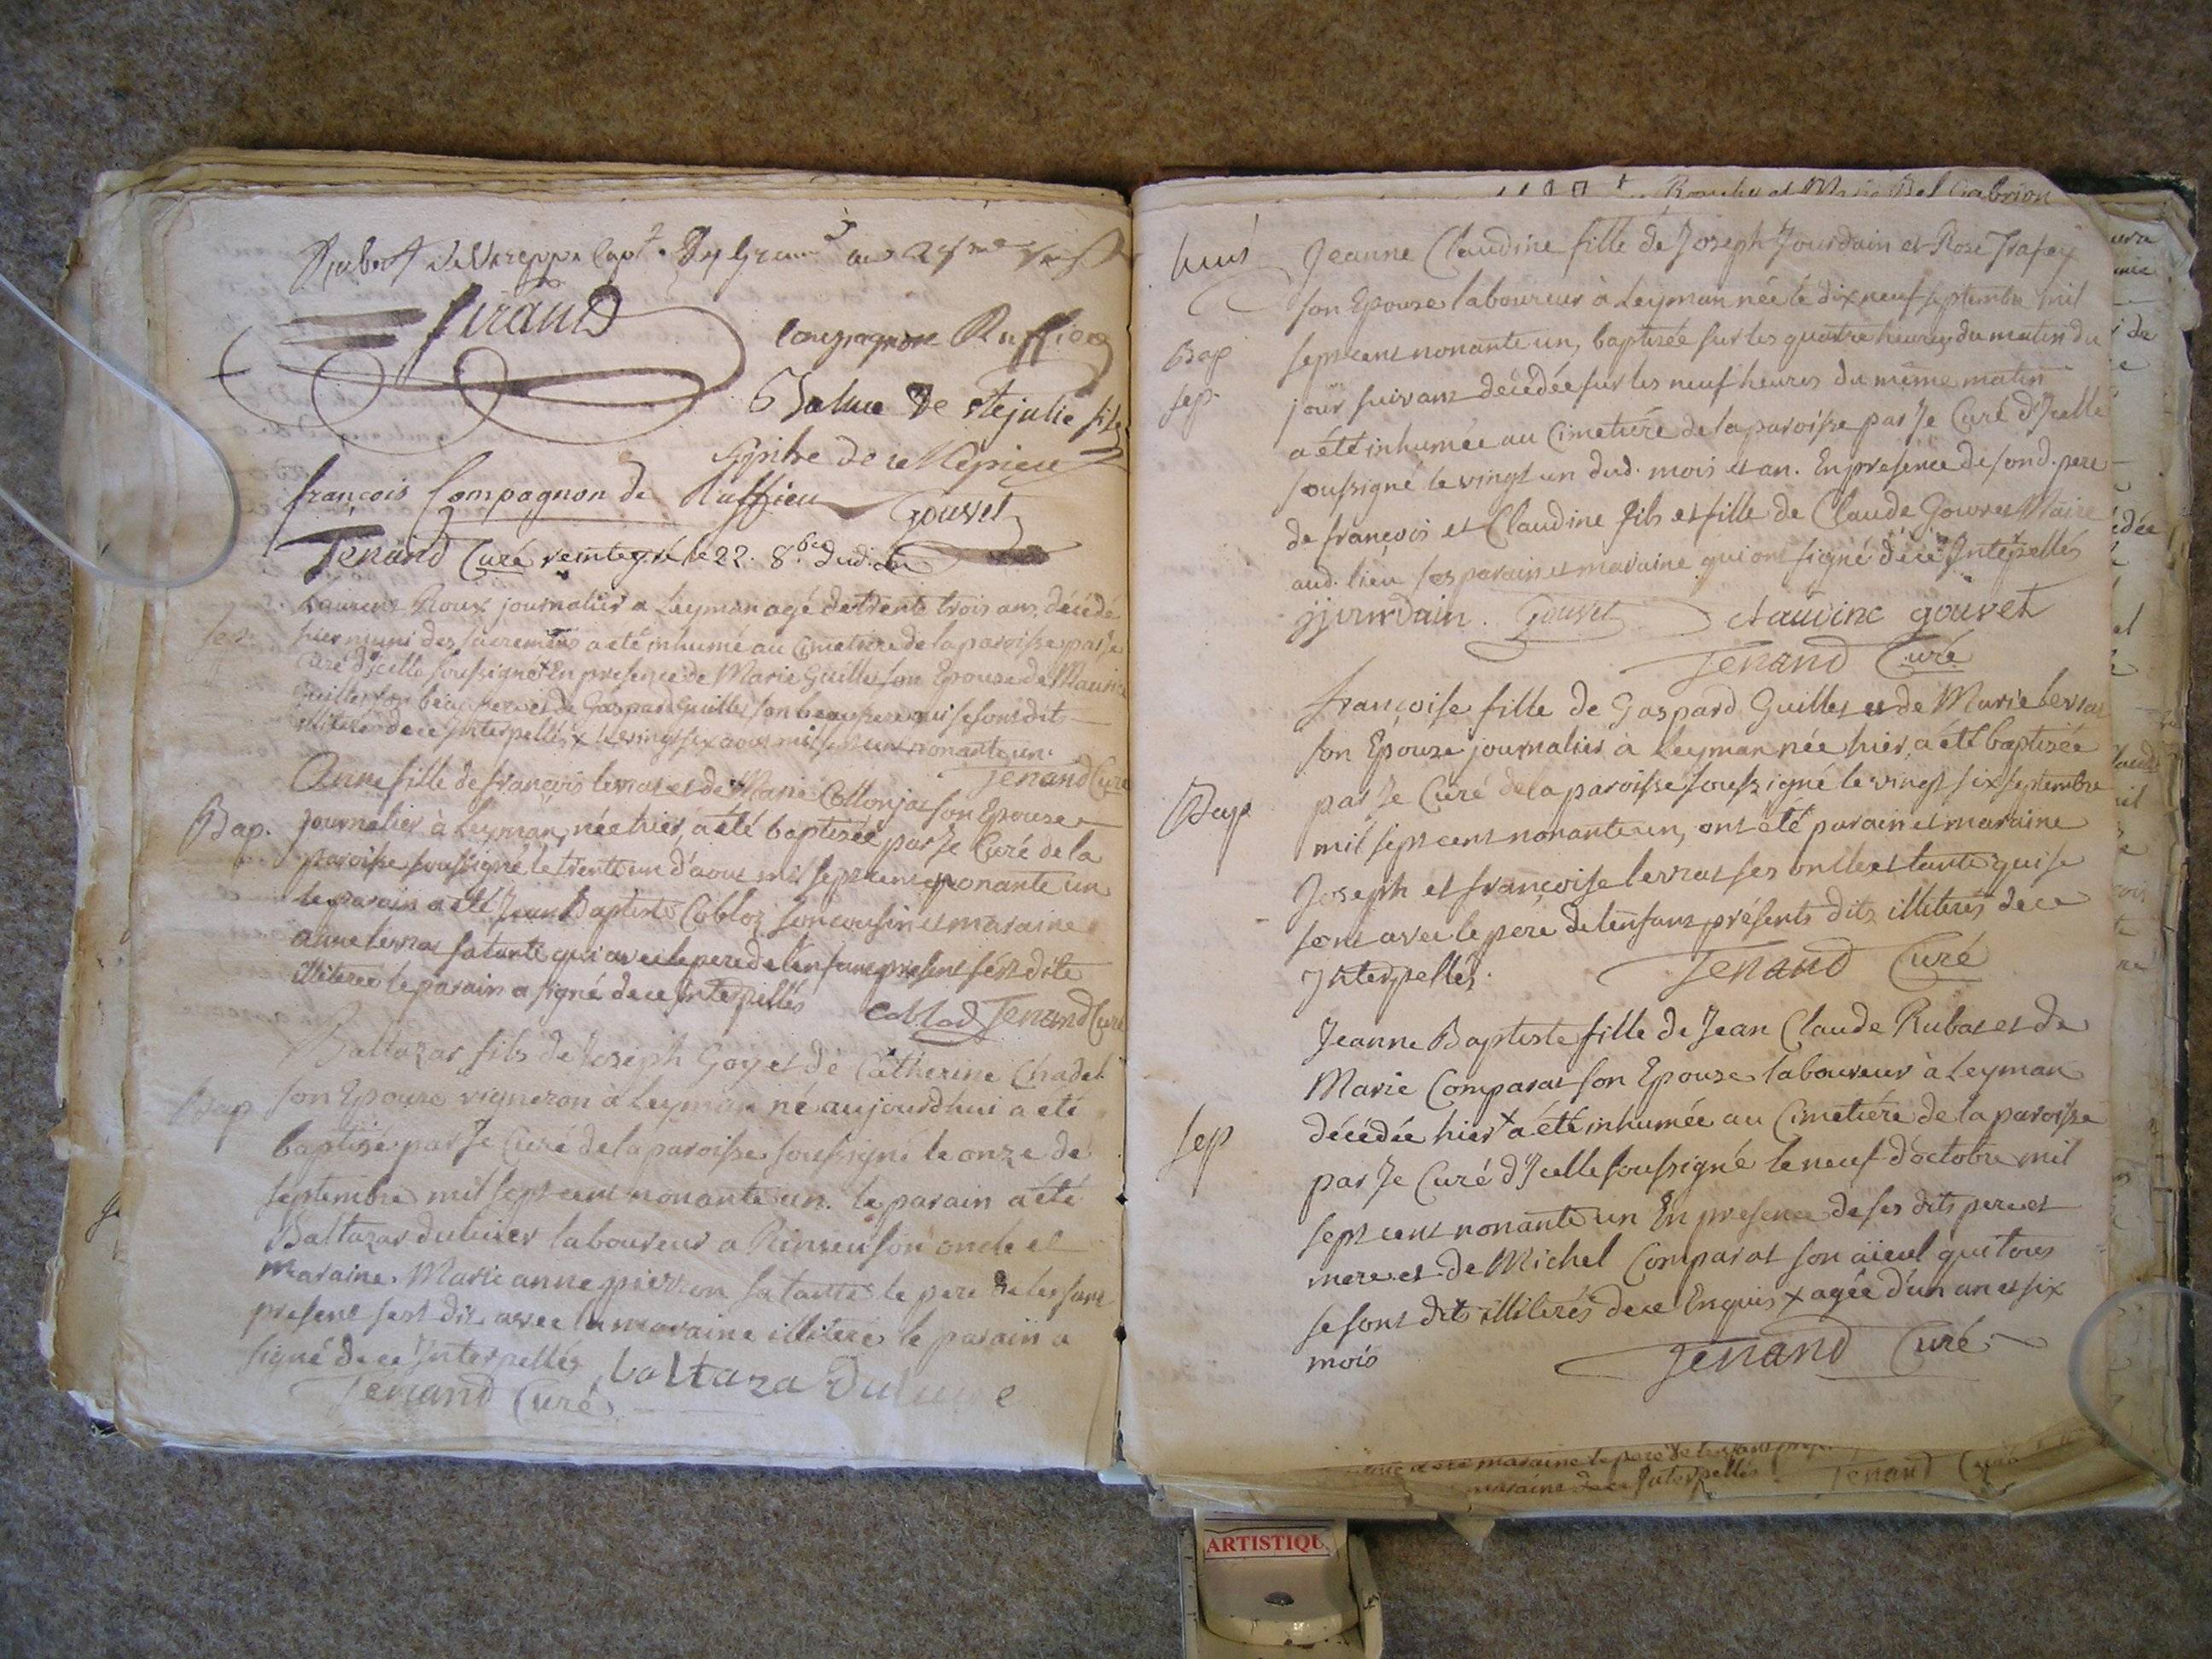 giraud
compagnon Ruffieu
de Ste julie fils
françois Compagnon de Ruffieu
Gouvet
Tenand Curé reintegré le 22. 8bre dud. an
Laurent Roux journalier a Leyman agé de trente trois ans, décédé
Sep.
hier muni des sacremens a été inhumé au Cimetiere de la paroisse par Je
Curé d'Jcelle soussigné En presence de Marie Guillet son Epouse de Maurice
Guillet son beau frere et de Gaspard Guillet son beau pere qui se sont dits
illiterés de ce Interpellés x le vingt six aout mil sept cent nonante un.
Tenand Curé
Anne fille de françois levrat et de Marie Collonjat son Epouse
Bap.
journalier à Leyman, née hier, a été baptisée par Je Curé de la
paroisse soussigné le trente un d'aout mil sept cent nonante un
le parain a été Jean Baptiste Cobloz son cousin et maraine
anne levrat sa tante qui avec le pere de lenfant present s'est dite
illiterée le parain a signé de ce Interpellés
Coblod Tenand Curé
Baltazar fils de Joseph Goy et de Catherine Chadel
Bap
son Epouse vigneron à Leyman né aujourdhui a été
baptisé par Je Curé de la paroisse soussigné le onze de
septembre mil sept cent nonante un. le parain a été
Baltazar laboureur a son oncle et
maraine Marie anne pierron sa tante le pere de lenfant
present s'est dit avec la maraine illiteré le parain a
signé de ce Interpellés
baltaza
Tenand Curé
Jeanne Claudine fille de Joseph Jourdain et Rose Trafay
son Epouse laboureur à Leyman née le dix neuf septembre mil
Bap
sept cent nonante un, baptisée sur les quatre heures du matin du
sep.
jour suivant décédée sur les neuf heures du meme matin
a été inhumée au Cimetiére de la paroisse par Je Curé d'Jcelle
soussigné le vingt un dud. mois et an. En presence de sond. pere
de françois et Claudine fils et fille de Claude Gouvet Maire
aud. lieu ses parain et maraine qui ont signé de ce Interpellés
jjourdain. Gouvet claudine gouvet
Tenand Curé
françoise fille de Gaspard Guillet et de Marie levrat
son Epouse journalier à Leyman née hier, a été baptisée
Bap
par Je Curé de la paroisse soussigné le vingt six septembre
mil sept cent nonante un, ont été parain et maraine
Joseph et françoise levrat ses oncle et tante qui se
sont avec le pere de lenfant présents dits illiterés de ce
Interpellés.
Tenand Curé
Jeanne Baptiste fille de Jean Claude Rubat et de
Marie Comparat son Epouse laboureur à Leyman
sep
décédée hier x a été inhumée au Cimetiére de la paroisse
par Je Curé d'Jcelle soussigné le neuf d'octobre mil
sept cent nonante un En presence de ses dits pere et
mere et de Michel Comparat son aïeul qui tous
se sont dits illiterés de ce Enquis x agée d'un an et six
mois
Tenand Curé
maraine de ce Interpellés Tenand Curé
ARTISTIQU